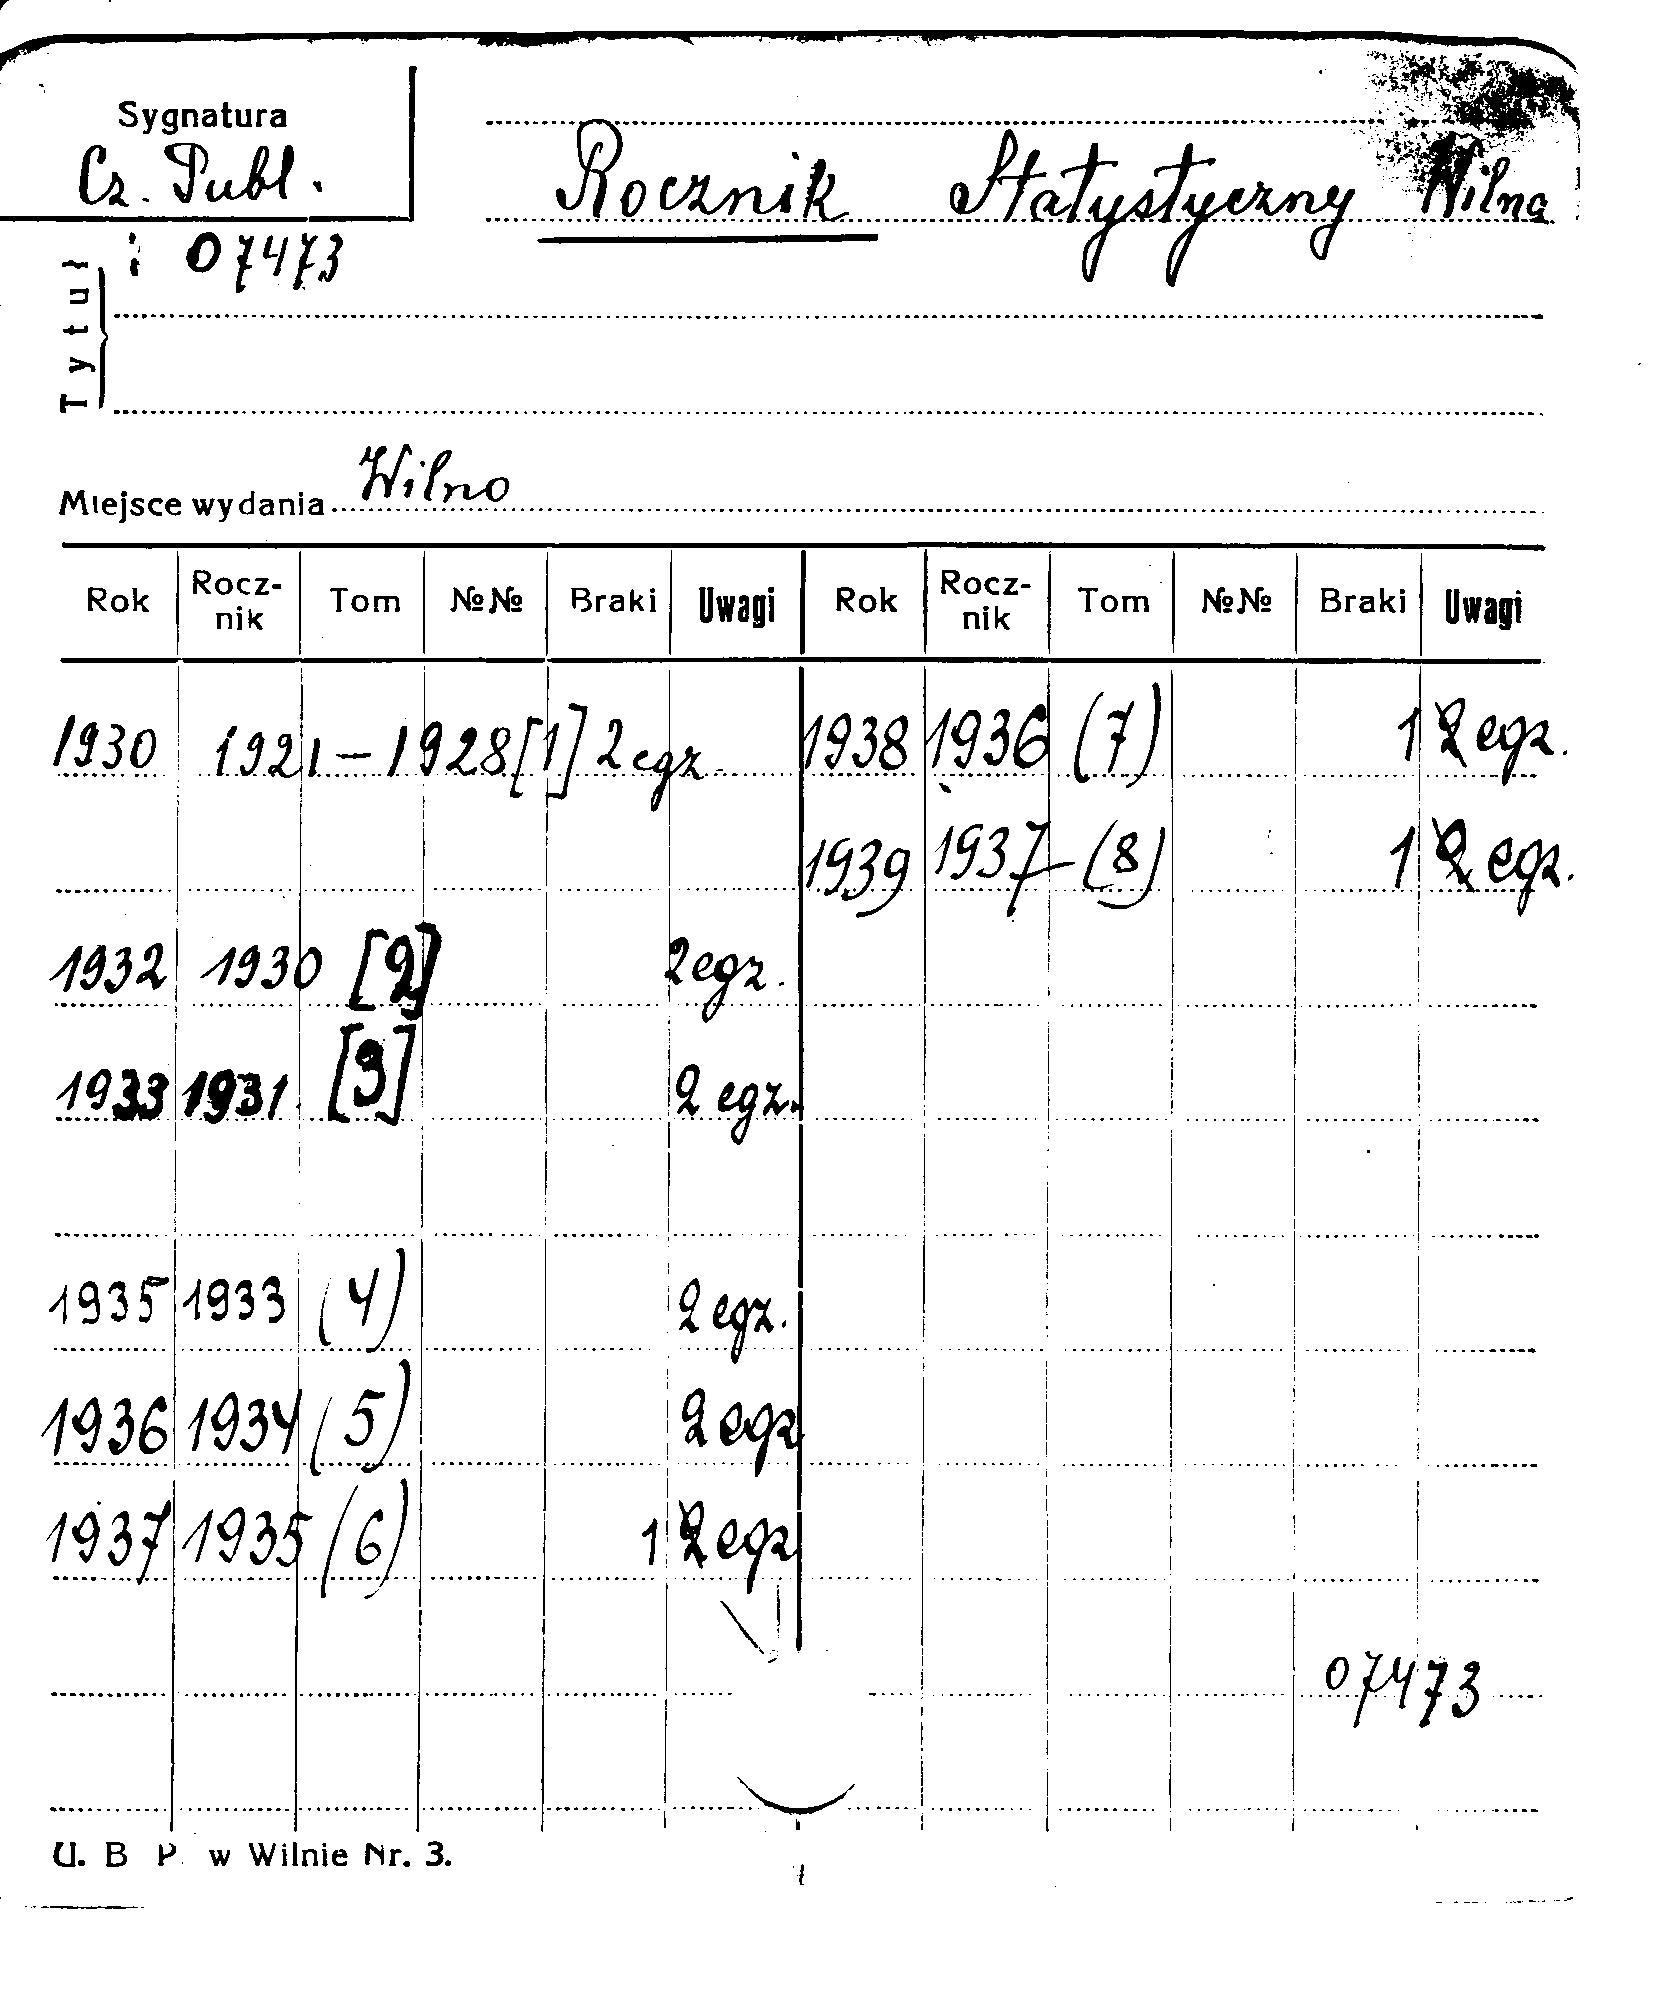 Sygnatura
Cz. Publ.
: 07473
Rocznik Statystyczny Wilna
Tytuł
Miejsce wydania Wilno
Rok Rocz-nik Tom №№ Braki Uwagi Rok Rocz-nik Tom №№ Braki Uwagi
1930 1921-1928 [1] 2 egz. 1938 1936 (7) 1 2 egz.
1939 1937 - (8) 1 2 egz.
1932 1930 [2] 2 egz.
1933 1931 [3] 2 egz.
1935 1933 (4) 2 egz.
1936 1934 (5) 2 egz
1937 1935 (6) 1 2 egz
07473
U. B P. w Wilnie Nr. 3.